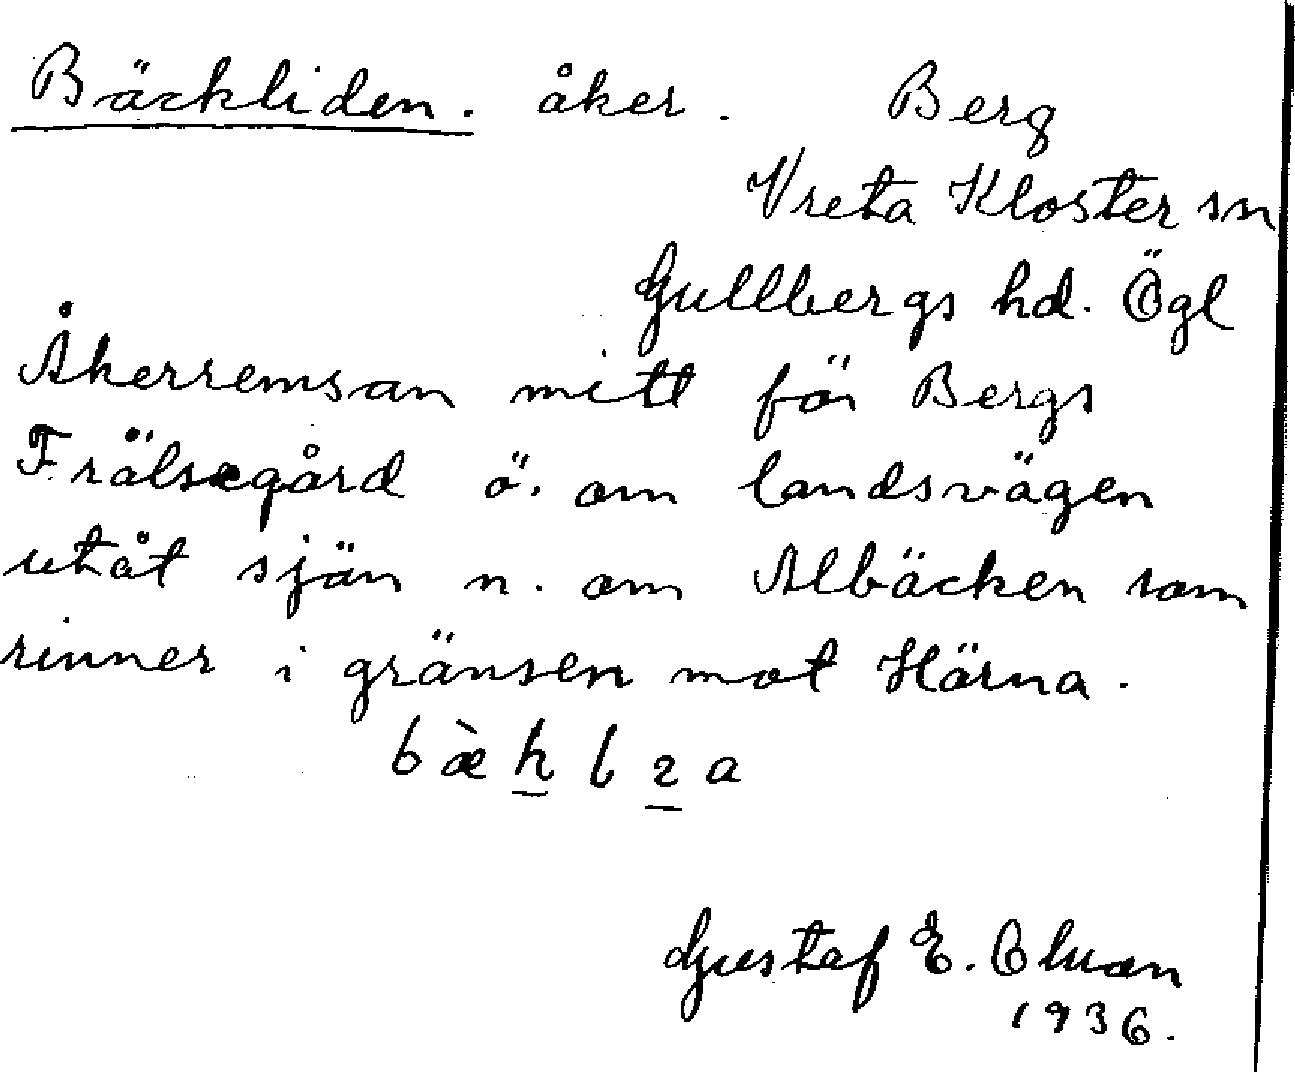 Bäckliden. åker. Berg
Vreta Kloster sn
Gullbergs hd. Ögl
Åkerremsan mitt för Bergs
Frälsegård ö. om landsvägen
utåt sjön n. om Albäcken som
rinner i gränsen mot Härna.
bæ̀k̲lɿ̲a
Gustaf E.
1936.